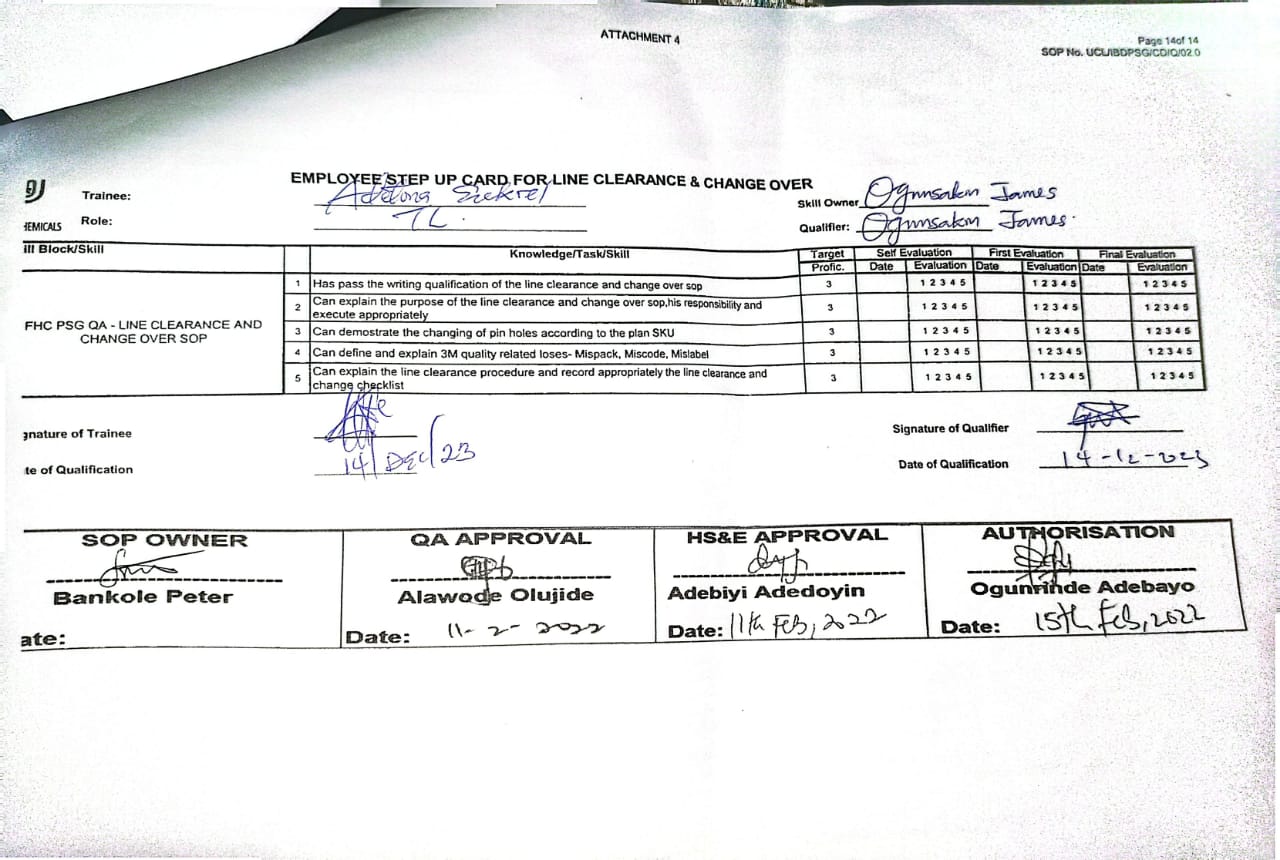 ATTACHMENT 4
Page 14of 14
SOP No. UCL/IBDPSG/CD/Q/02.0
EMPLOYEE STEP UP CARD FOR LINE CLEARANCE & CHANGE OVER
Trainee:
Skill Owner Ogunsakin James
EMICALS Role: TL.
Qualifier: Ogunsakin James.
ill Block/Skill Knowledge/Task/Skill Target Profic. Self Evaluation First Evaluation Final Evaluation
Date Evaluation Date Evaluation Date Evaluation
FHC PSG QA - LINE CLEARANCE AND CHANGE OVER SOP
1 Has pass the writing qualification of the line clearance and change over sop 3 1 2 3 4 5 1 2 3 4 5 1 2 3 4 5
2 Can explain the purpose of the line clearance and change over sop,his responsibility and
execute appropriately 3 1 2 3 4 5 1 2 3 4 5 1 2 3 4 5
3 Can demostrate the changing of pin holes according to the plan SKU 3 1 2 3 4 5 1 2 3 4 5 1 2 3 4 5
4 Can define and explain 3M quality related loses- Mispack, Miscode, Mislabel 3 1 2 3 4 5 1 2 3 4 5 1 2 3 4 5
5 Can explain the line clearance procedure and record appropriately the line clearance and
change checklist 3 1 2 3 4 5 1 2 3 4 5 1 2 3 4 5
gnature of Trainee
Signature of Qualifier
te of Qualification 14/DEC/23
Date of Qualification 14-12-2023
SOP OWNER QA APPROVAL HS&E APPROVAL AUTHORISATION
Bankole Peter Alawode Olujide Adebiyi Adedoyin Ogunrinde Adebayo
ate: Date: 11-2-2022 Date: 11th Feb, 2022 Date: 15th Feb, 2022